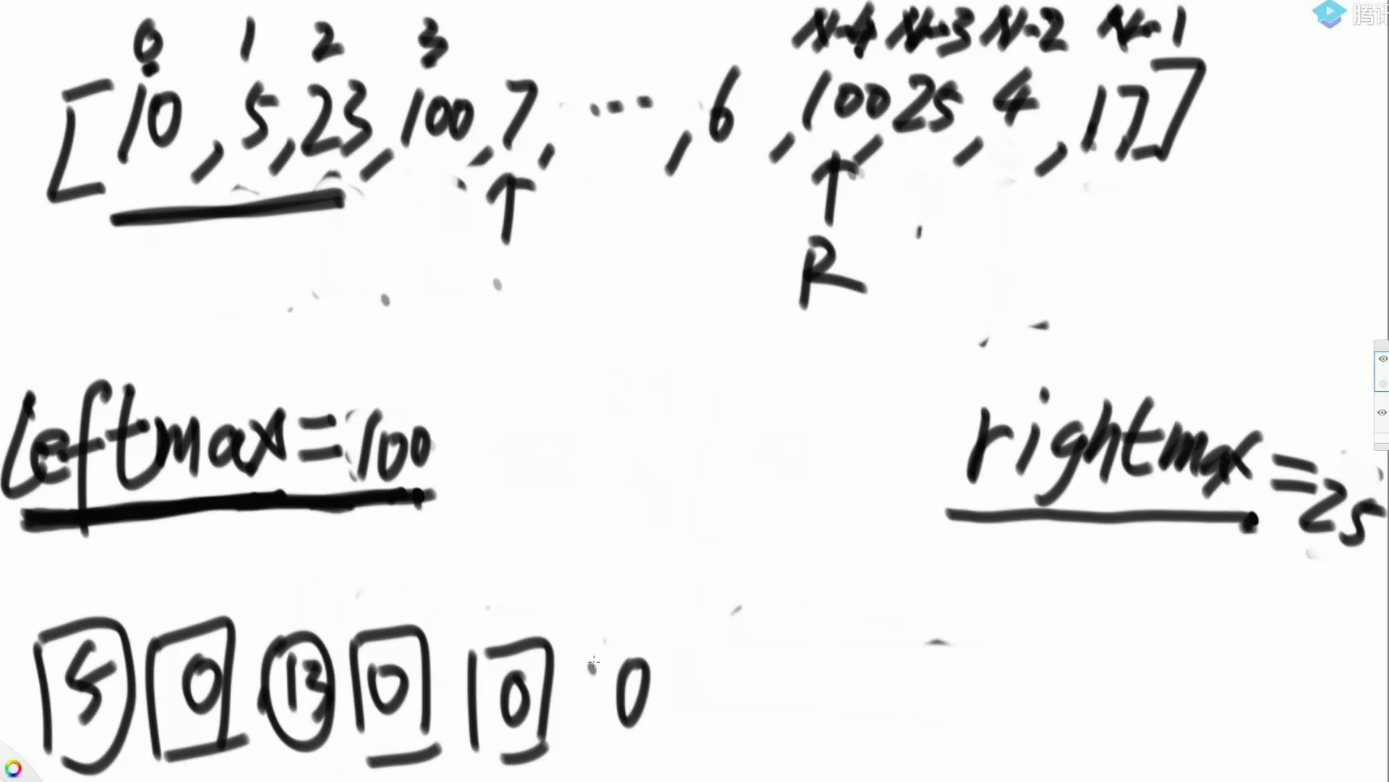 0 1 2 3 N-4 N-3 N-2 N-1
[10, 5, 23, 100, 7, ..., 6, 100, 25, 4, 17]
R
leftmax=100
rightmax=25
5 0 13 0 0 0
腾讯